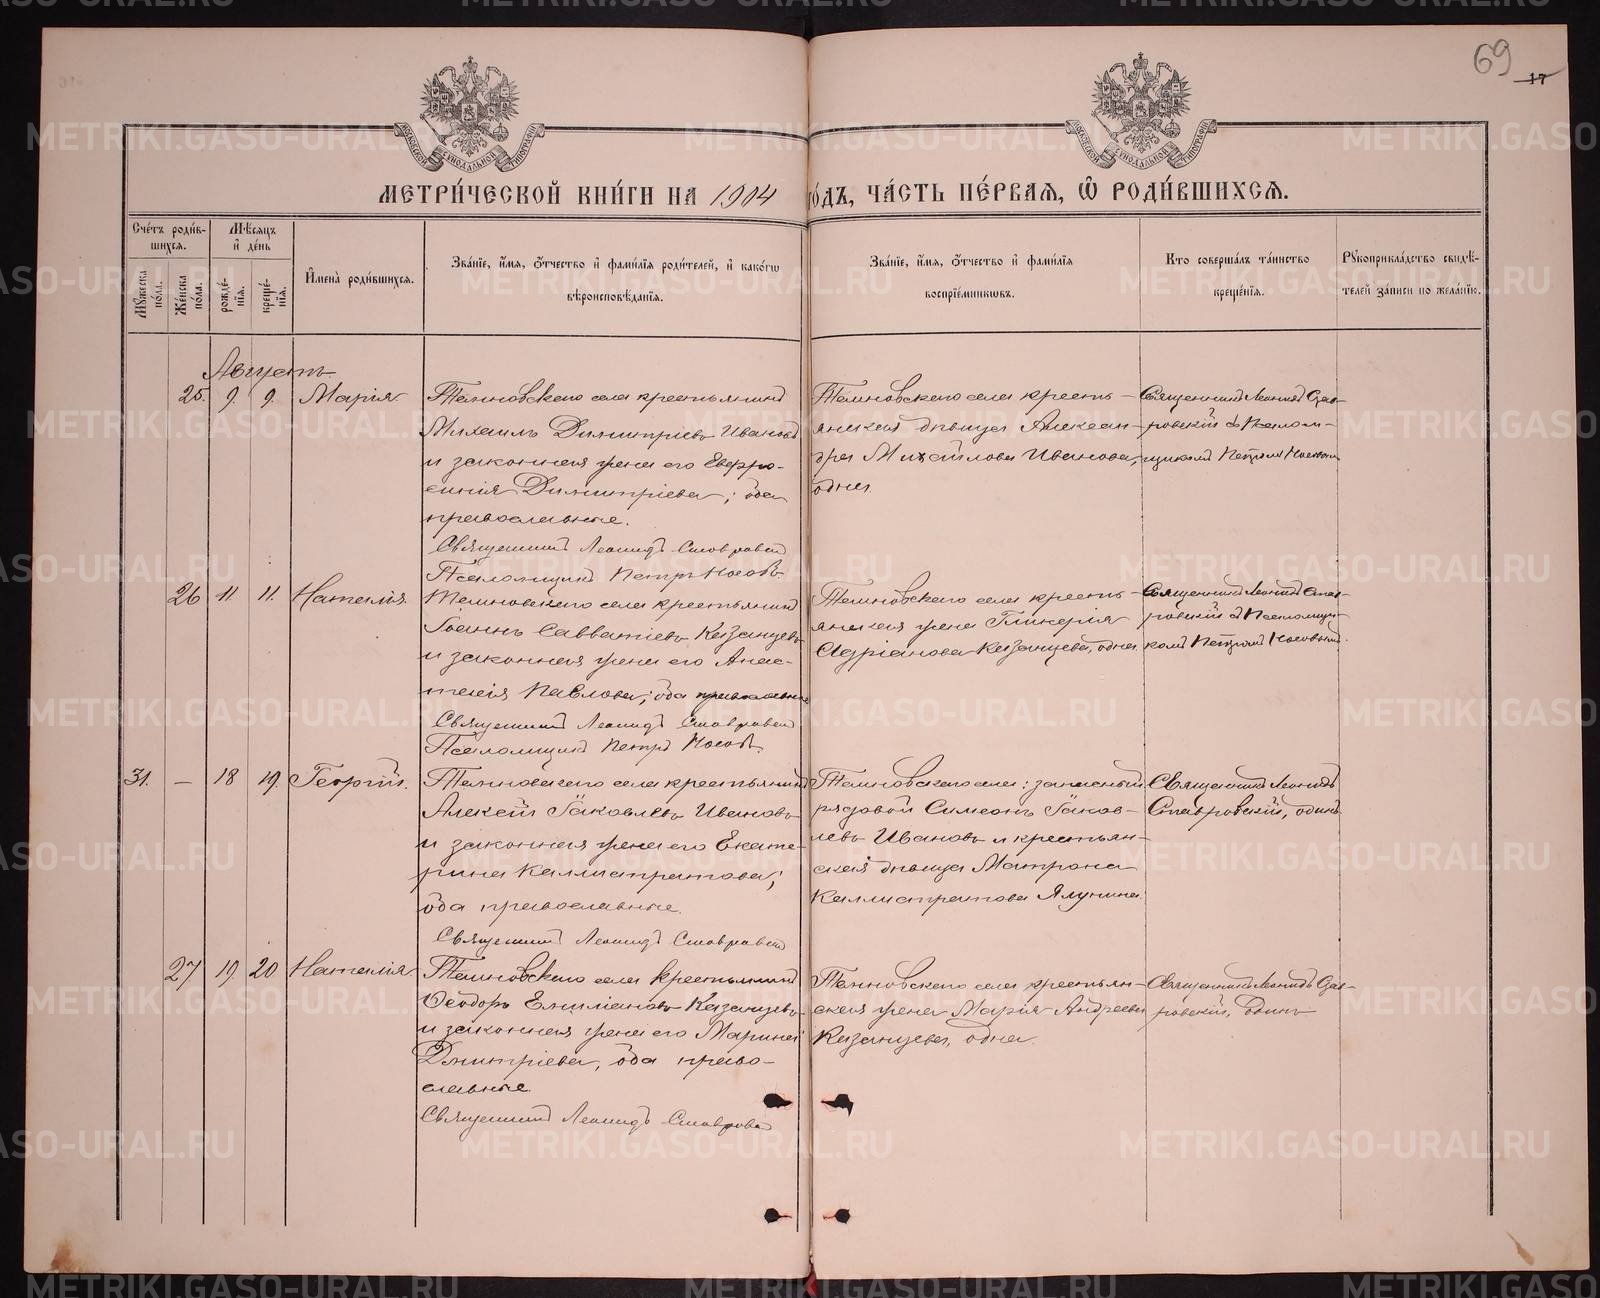 69
17
МЕТРИ́ЧЕСКОЙ КНИ́ГИ НА 1904 ГО́ДЪ, ЧА́СТЬ ПЕ́РВАЯ, Ѡ РОДИ́ВШИХСЯ.
Сче́тъ роди́в-
шихся.
Мѣ́сяцъ
и де́нь
Мꙋ́жеска по́ла.
Же́нска по́ла.
рожде́-
нїя.
креще́-
нїя.
Имена̀ роди́вшихся.
Зва́нїе, и́мя, ѻ́тчество и фами́лїя роди́телей, и како́гѡ
вѣроисповѣ́данїя.
Зва́нїе, и́мя, ѻ́тчество и фами́лїя
воспрїе́мниковъ.
Кто соверша́лъ та́инство
креще́нїя.
Рꙋкоприкла́дство свидѣ́-
телей за́писи по жела́нїю.
Августъ.
25. 9. 9. Марія
Темновскаго села крестьянинъ
Михаилъ Димитріевъ Ивановъ
и законная жена его Евфро-
синія Димитріева; оба
православные.
Священникъ Леонидъ Ставровскій
Псаломщикъ Петръ Носовъ.
Темновскаго села кресть-
янская дѣвица Алексан-
дра Михаилова Иванова,
одна.
Священникъ Леонидъ Став-
ровскій съ Псалом-
щикомъ Петромъ Носовым
26 11 11. Наталія.
Темновскаго села крестьянинъ
Іоаннъ Савватіевъ Казанцевъ
и законная жена его Анас-
тасія Павлова; оба православные
Священникъ Леонидъ Ставровскій
Псаломщикъ Петръ Носовъ.
Темновскаго села кресть-
янская жена Гликерія
Адріанова Казанцева, одна.
Священникъ Леонидъ Став-
ровскій съ Псаломщи-
комъ Петромъ Носовымъ.
31. — 18 19. Георгій.
Темновскаго села крестьянинъ
Алексій Іаковлевъ Ивановъ
и законная жена его Екате-
рина Каллистратова;
оба православные.
Священникъ Леонидъ Ставровскій
Темновскаго села: запасный
рядовой Симеонъ Іаков-
левъ Ивановъ и крестьян-
ская дѣвица Матрона
Каллистратова Ялунина.
Священникъ Леонидъ
Ставровскій, одинъ.
27 19 20 Наталія
Темновскаго села крестьянинъ
Ѳеодоръ Емиліановъ Казанцевъ
и законная жена его Марина
Димитріева, оба право-
славные.
Священникъ Леонидъ Ставровскій
Темновскаго села крестьян-
ская жена Марія Андреева
Казанцева, одна.
Священникъ Леонидъ Став-
ровскій, Одинъ
METRIKI.GASO-URAL.RU